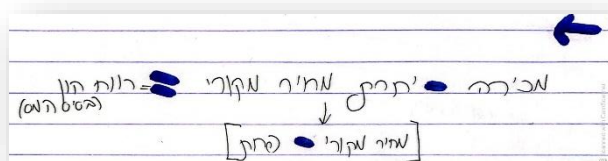 מכירה - יתרת מחיר מקורי = רווח הון
(בסיס המס)
[מחיר מקורי - פחת]